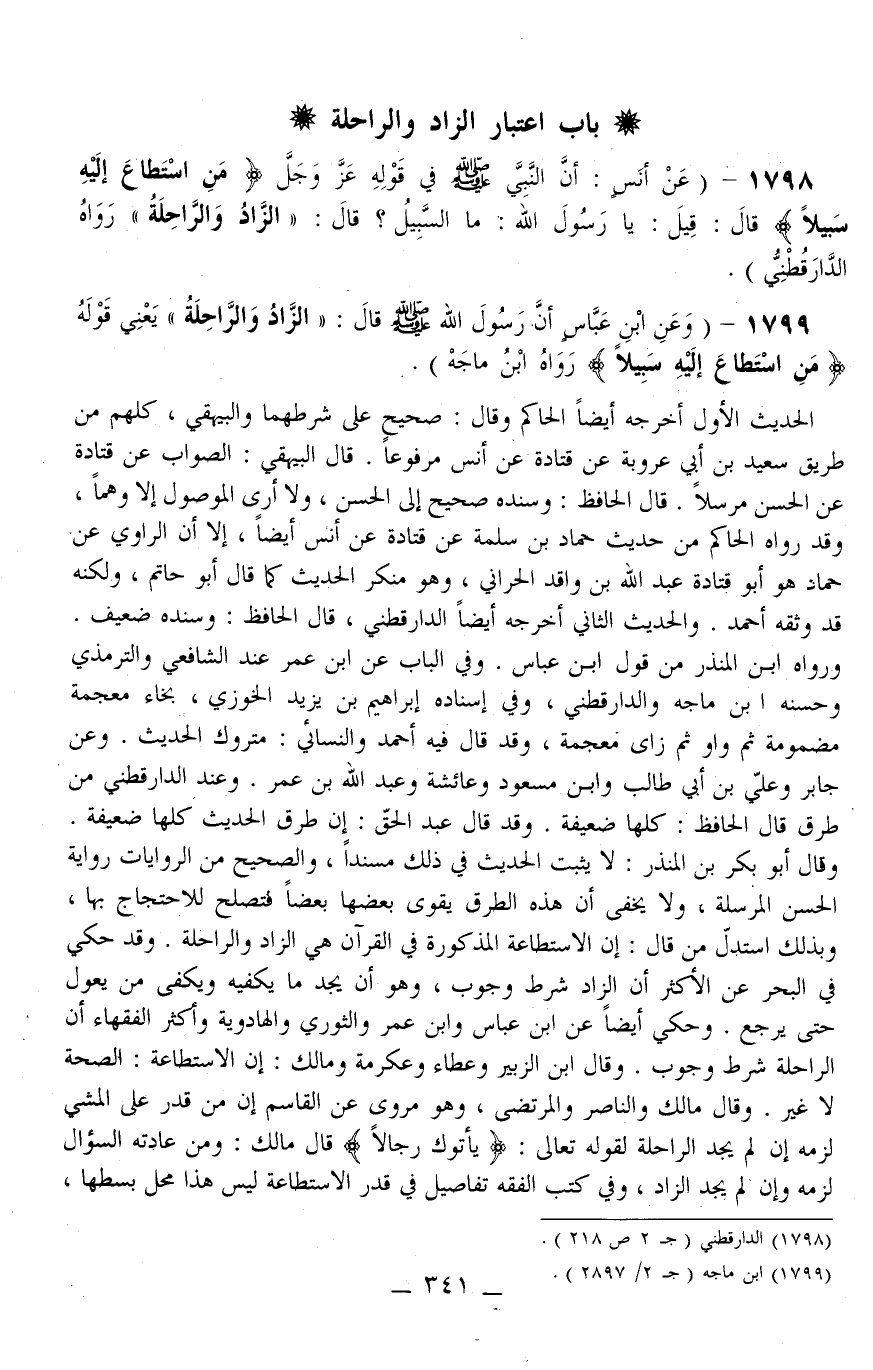 باب اعتبار الزاد والراحلة
١٧٩٨ - ( عَنْ أنَسٍ : أنَّ النَّبِيَّ ﷺ في قَوْلِهِ عَزَّ وَجَلَّ ﴿ مَنِ اسْتَطاعَ إلَيْهِ
سَبيلاً ﴾ قالَ : قِيلَ : يا رَسُولَ الله : ما السَّبِيلُ ؟ قالَ : « الزَّادُ وَالرَّاحِلَةُ » رَوَاهُ
الدَّارَقُطْنِيُّ ) .
١٧٩٩ - ( وَعَنِ ابْنِ عَبَّاسٍ أنَّ رَسُولَ الله ﷺ قالَ : « الزَّادُ وَالرَّاحِلَةُ » يَعْنِي قَوْلَهُ
﴿ مَنِ اسْتَطاعَ إلَيْهِ سَبِيلاً ﴾ رَوَاهُ ابْنُ ماجَهْ ) .
الحديث الأول أخرجه أيضاً الحاكم وقال : صحيح على شرطهما والبيهقي ، كلهم من
طريق سعيد بن أبي عروبة عن قتادة عن أنس مرفوعاً . قال البيهقي : الصواب عن قتادة
عن الحسن مرسلاً . قال الحافظ : وسنده صحيح إلى الحسن ، ولا أرى الموصول إلا وهماً ،
وقد رواه الحاكم من حديث حماد بن سلمة عن قتادة عن أنس أيضاً ، إلا أن الراوي عن
حماد هو أبو قتادة عبد الله بن واقد الحراني ، وهو منكر الحديث كما قال أبو حاتم ، ولكنه
قد وثقه أحمد . والحديث الثاني أخرجه أيضاً الدارقطني ، قال الحافظ : وسنده ضعيف .
ورواه ابن المنذر من قول ابن عباس . وفي الباب عن ابن عمر عند الشافعي والترمذي
وحسنه ا بن ماجه والدارقطني ، وفي إسناده إبراهيم بن يزيد الخوزي ، بخاء معجمة
مضمومة ثم واو ثم زاى معجمة ، وقد قال فيه أحمد والنسائي : متروك الحديث . وعن
جابر وعليّ بن أبي طالب وابن مسعود وعائشة وعبد الله بن عمر . وعند الدارقطني من
طرق قال الحافظ : كلها ضعيفة . وقد قال عبد الحقّ : إن طرق الحديث كلها ضعيفة .
وقال أبو بكر بن المنذر : لا يثبت الحديث في ذلك مسنداً ، والصحيح من الروايات رواية
الحسن المرسلة ، ولا يخفى أن هذه الطرق يقوى بعضها بعضاً فتصلح للاحتجاج بها ،
وبذلك استدلّ من قال : إن الاستطاعة المذكورة في القرآن هي الزاد والراحلة . وقد حكي
في البحر عن الأكثر أن الزاد شرط وجوب ، وهو أن يجد ما يكفيه ويكفى من يعول
حتى يرجع . وحكي أيضاً عن ابن عباس وابن عمر والثوري والهادوية وأكثر الفقهاء أن
الراحلة شرط وجوب . وقال ابن الزبير وعطاء وعكرمة ومالك : إن الاستطاعة : الصحة
لا غير . وقال مالك والناصر والمرتضى ، وهو مروى عن القاسم إن من قدر على المشي
لزمه إن لم يجد الراحلة لقوله تعالى : ﴿ يأتوك رجالاً ﴾ قال مالك : ومن عادته السؤال
لزمه وإن لم يجد الزاد ، وفي كتب الفقه تفاصيل في قدر الاستطاعة ليس هذا محل بسطها ،
(١٧٩٨) الدارقطني ( جـ ٢ ص ٢١٨ ) .
(١٧٩٩) ابن ماجه ( جـ ٢/ ٢٨٩٧ ) .
– ٣٤١ –